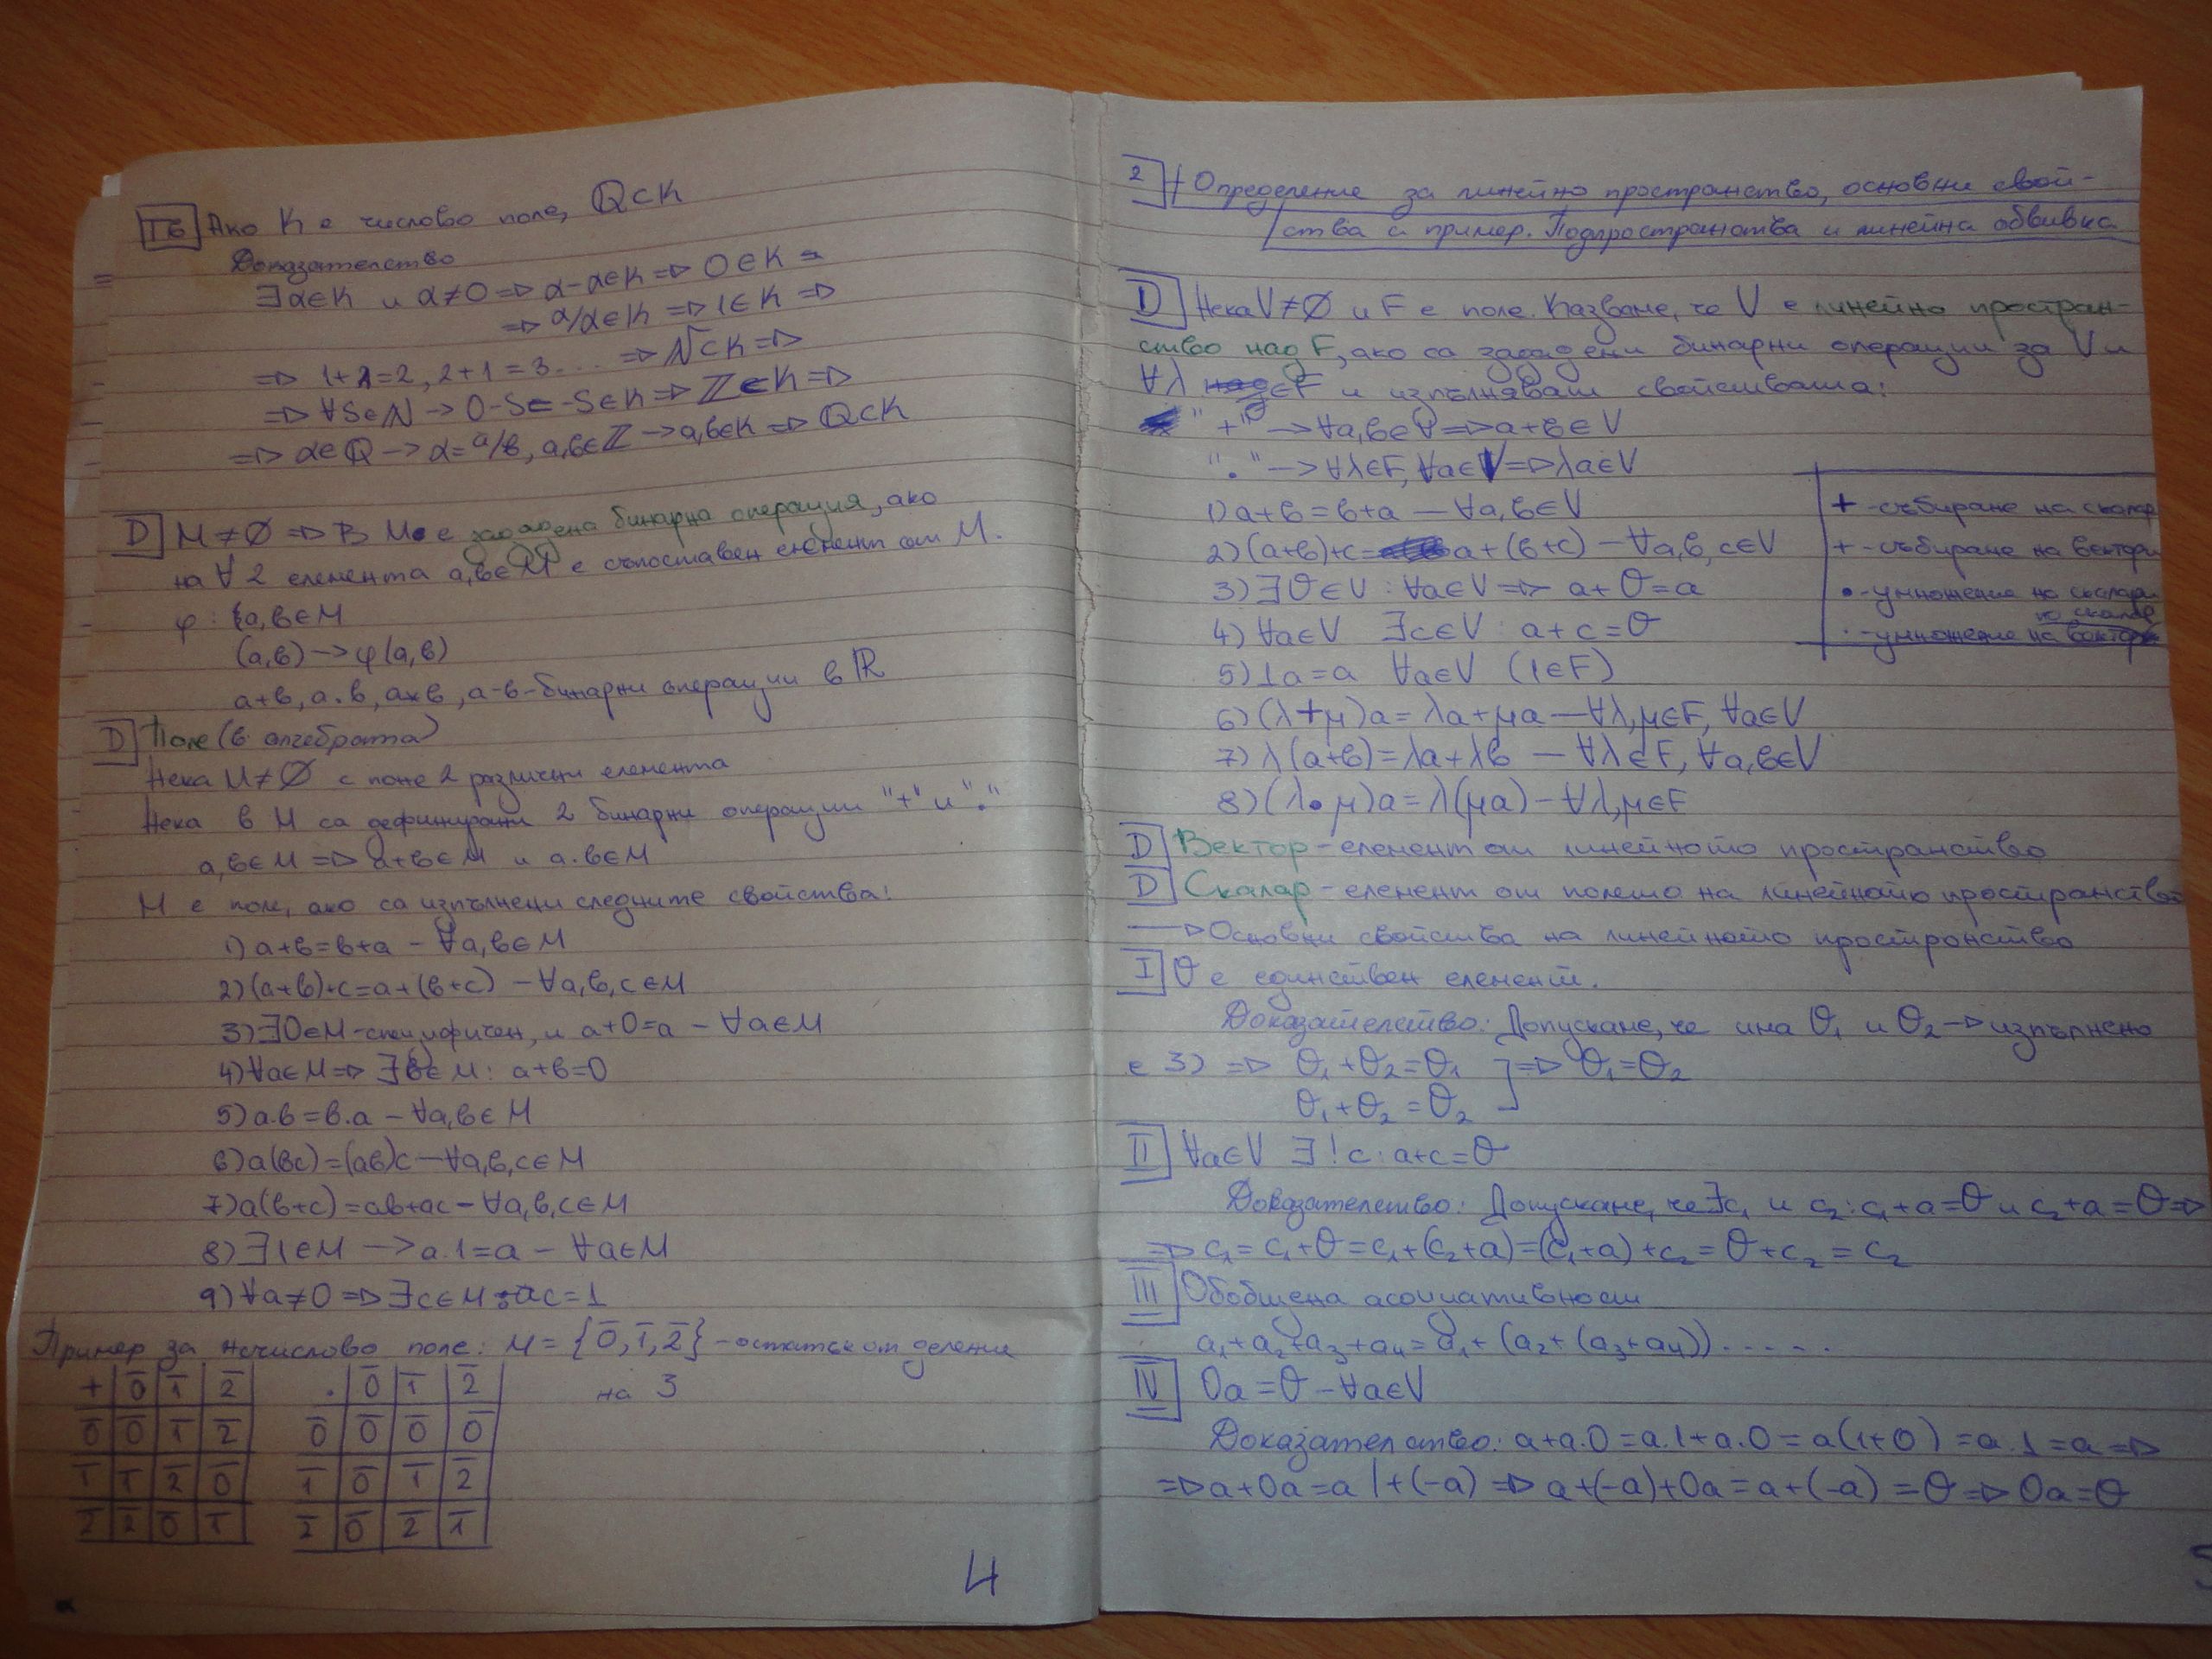 Тб Ако K е числово поле, ℚ⊂K
Доказателство
∃α∈K и α≠0 => α-α∈K => 0∈K =>
=> α/α∈K => 1∈K =>
=> 1+1=2, 2+1=3... => ℕ⊂K =>
=> ∀s∈ℕ → 0-s=-s∈K => ℤ⊂K =>
=> α∈ℚ → α=a/в, a,в∈ℤ → a,в∈K => ℚ⊂K
D M≠∅ => В M е зададена бинарна операция, ако
на ∀ 2 елемента a,в∈M е съпоставен елемент от M.
φ: {a,в∈M
(a,в)→φ(a,в)
a+в, a.в, a×в, a-в-бинарни операции в ℝ
D Поле (в алгебрата)
Нека M≠∅ с поне 2 различни елемента
Нека в M са дефинирани 2 бинарни операции "+" и "."
a,в∈M => a+в∈M и a.в∈M
M е поле, ако са изпълнени следните свойства:
1) a+в=в+a - ∀a,в∈M
2) (a+в)+c=a+(в+c) - ∀a,в,c∈M
3) ∃0∈M-специфичен, и a+0=a - ∀a∈M
4) ∀a∈M => ∃в∈M: a+в=0
5) a.в=в.a - ∀a,в∈M
6) a(вc)=(aв)c - ∀a,в,c∈M
7) a(в+c)=aв+ac - ∀a,в,c∈M
8) ∃1∈M → a.1=a - ∀a∈M
9) ∀a≠0 => ∃c∈M: ac=1
Пример за нечислово поле: M={0̅,1̅,2̅}-остатък от деление
на 3
+ 0̅ 1̅ 2̅
0̅ 0̅ 1̅ 2̅
1̅ 1̅ 2̅ 0̅
2̅ 2̅ 0̅ 1̅
. 0̅ 1̅ 2̅
0̅ 0̅ 0̅ 0̅
1̅ 0̅ 1̅ 2̅
2̅ 0̅ 2̅ 1̅
4
2 Определение за линейно пространство, основни свой-
ства и пример. Подпространства и линейна обвивка
D Нека V≠∅ и F е поле. Казваме, че V е линейно простран-
ство над F, ако са зададени бинарни операции за V и
∀λ ∈F и изпълняват свойствата:
"+" → ∀a,в∈V => a+в∈V
"." → ∀λ∈F, ∀a∈V => λa∈V
1) a+в=в+a — ∀a,в∈V
2) (a+в)+c= a+(в+c) — ∀a,в,c∈V
3) ∃θ∈V : ∀a∈V => a+θ=a
4) ∀a∈V ∃c∈V: a+c=θ
5) 1a=a ∀a∈V (1∈F)
6) (λ+μ)a=λa+μa — ∀λ,μ∈F, ∀a∈V
7) λ(a+в)=λa+λв — ∀λ∈F, ∀a,в∈V
8) (λ.μ)a=λ(μa) - ∀λ,μ∈F
+ -събиране на скалар
+ -събиране на вектори
• -умножение на скалари
по скалар
. -умножение на вектор
D Вектор - елемент от линейното пространство
D Скалар - елемент от полето на линейното пространство
→ Основни свойства на линейното пространство
I θ е единствен елемент.
Доказателство: Допускаме, че има θ₁ и θ₂ → изпълнено
е 3) => θ₁+θ₂=θ₁ ] => θ₁=θ₂
θ₁+θ₂=θ₂
II ∀a∈V ∃!c: a+c=θ
Доказателство: Допускаме, че ∃c₁ и c₂: c₁+a=θ и c₂+a=θ =>
=> c₁=c₁+θ=c₁+(c₂+a)=(c₁+a)+c₂=θ+c₂=c₂
III Обобщена асоциативност
a₁+a₂+a₃+a₄=a₁+(a₂+(a₃+a₄)).....
IV 0a=θ - ∀a∈V
Доказателство: a+a.0=a.1+a.0=a(1+0)=a.1=a =>
=> a+0a=a |+(-a) => a+(-a)+0a=a+(-a)=θ => 0a=θ
5